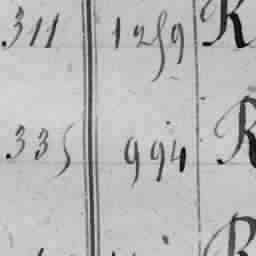 311 1259 R
335 994 R
R